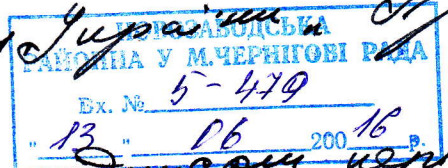 України
НОВОЗАВОДСЬКА
РАЙОННА У М.ЧЕРНІГОВІ РАДА
Вх. № 5-479
"13" 06 200 16 р.